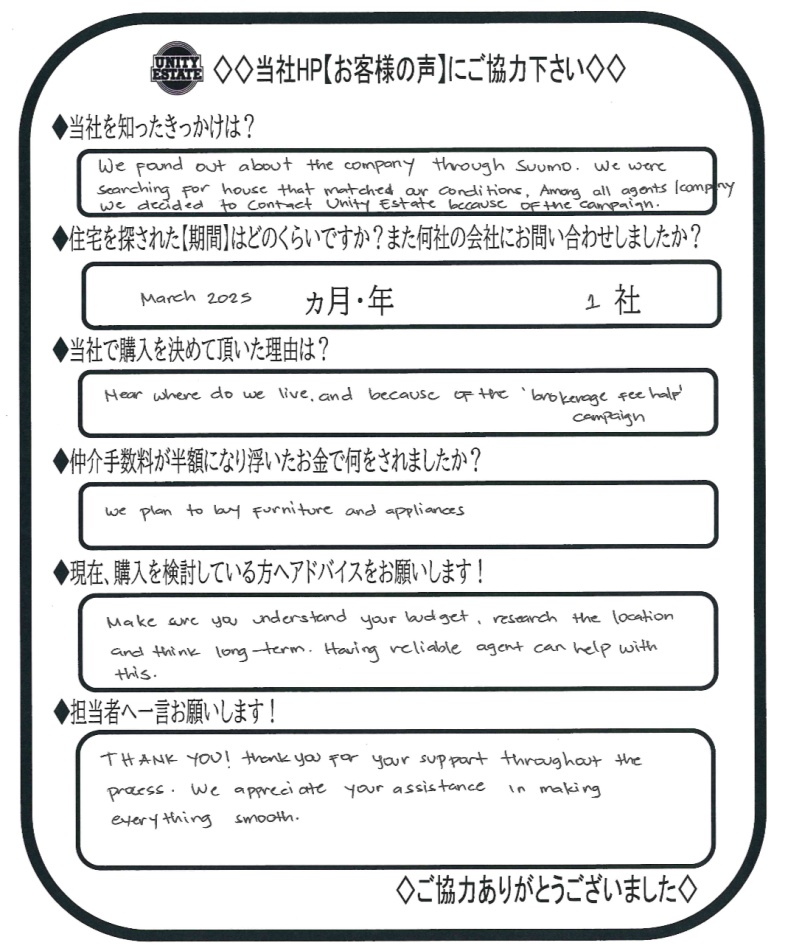 UNITY
ESTATE
◇◇当社HP【お客様の声】にご協力下さい◇◇
◆当社を知ったきっかけは？
We found out about the company through Suumo. We were
searching for house that matched our conditions, Among all agents /company
we decided to contact Unity Estate because of the campaign.
◆住宅を探された【期間】はどのくらいですか？また何社の会社にお問い合わせしましたか？
March 2025 ヵ月・年 1 社
◆当社で購入を決めて頂いた理由は？
Near where do we live, and because of the 'brokerage fee half'
campaign
◆仲介手数料が半額になり浮いたお金で何をされましたか？
we plan to buy furniture and appliances
◆現在、購入を検討している方へアドバイスをお願いします！
Make sure you understand your budget, research the location
and think long-term. Having reliable agent can help with
this.
◆担当者へ一言お願いします！
THANK YOU! thank you for your support throughout the
process. We appreciate your assistance in making
everything smooth.
◇ご協力ありがとうございました◇